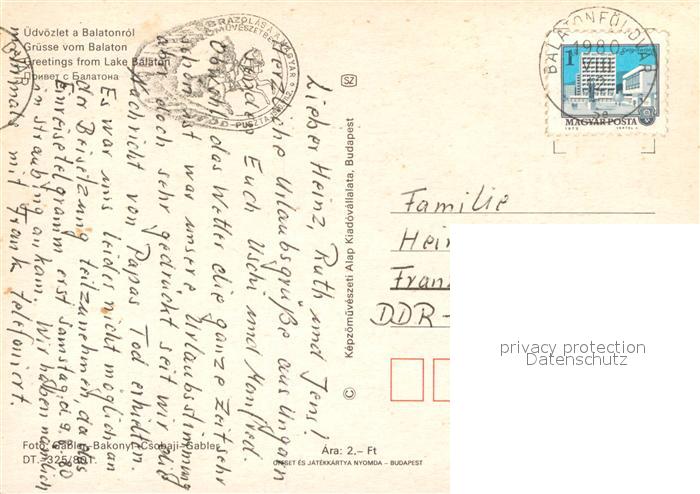 Üdvözlet a Balatonról
Grüsse vom Balaton
Greetings from Lake Balaton
Привет с Балатона
Lieber Heinz, Ruth und Jens!
Herzliche Urlaubsgrüße aus Ungarn
senden Euch Uschi und Manfred
Obwohl das Wetter die ganze Zeit sehr
schön ist war unsere Urlaubsstimmung
aber doch sehr gedrückt seit wir die
Nachricht von Papas Tod erhielten.
Es war uns leider nicht möglich an
der Beisetzung teilzunehmen, da das
Einreisetelegramm erst Samstag d. 9.8.80
in Straubing ankam. Wir haben nämlich
mehrmals mit Frank telefoniert.
Foto: Gabler–Bakonyi–Csobaji–Gabler
DT.–325/801.
© Képzőművészeti Alap Kiadóvállalata, Budapest
SZ
Ára: 2.– Ft
OFFSET ÉS JÁTÉKKÁRTYA NYOMDA – BUDAPEST
BALATONFÖLDVÁR
1980
VIII
1
MAGYAR POSTA
Familie
DDR-
privacy protection
Datenschutz